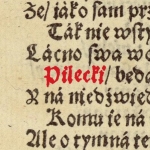 Ze/ jáko sam prz
Ták nie wsty
Lácno swa wo
Pilecki/ beda
R ná niedźwied
Komu ie ná
Ale o tymná te